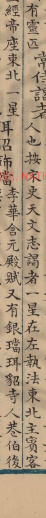 有靈匹
常侍謁者
人也按宋史天文志謁者一星在左執法東北主賓客
經帝座東北一星
耳貂飾璫李華含元殿賦又有銀璫珥貂寺人巷伯後